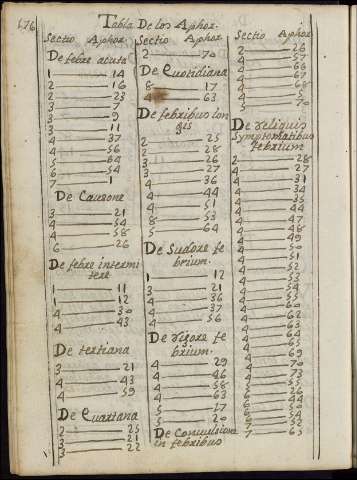 176
Tabla De los Aphor.
Sectio Aphor.
De febre acuta
1 14
2 16
2 23
3 7
3 9
3 11
4 37
4 56
6 54
7 54
7 1
De Causone
3 21
4 54
4 58
6 26
De febre intermi
tete
1 11
1 12
4 30
4 43
De tertiana
3 21
4 43
4 59
De Quartana
2 25
3 21
3 22
Sectio Aphor
2 70
De Quotidiana
8 17
4 63
De febribus lon
gis
2 25
2 28
3 26
3 27
4 36
4 44
4 51
8 53
5 64
De Sudore fe
brium.
1 12
3 21
4 36
4 37
4 56
De rigore fe
brium.
4 29
4 46
4 58
4 63
5 17
5 20
De Convulsione
in febribus
Sectio Aphor
2 26
4 57
4 66
4 67
4 68
5 5
5 70
De reliquis
Symptomatibus
febrium
2 28
4 27
4 31
4 34
4 35
4 44
4 47
4 48
4 49
4 50
4 51
4 52
4 53
4 54
4 55
4 60
4 62
4 63
4 64
4 65
4 69
4 70
4 73
5 55
6 26
6 44
6 50
7 54
7 52
7 63